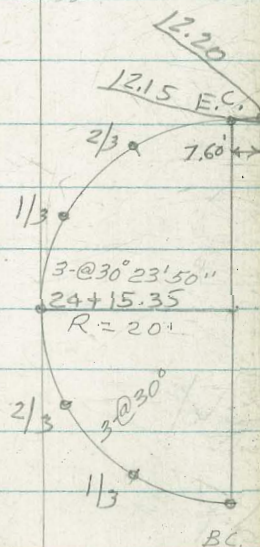 12.20
12.15 E.C.
2/3
7.60'
1/3
3-@30°23'50"
24+15.35
R = 20'
2/3
3-@30°
1/3
B.C.